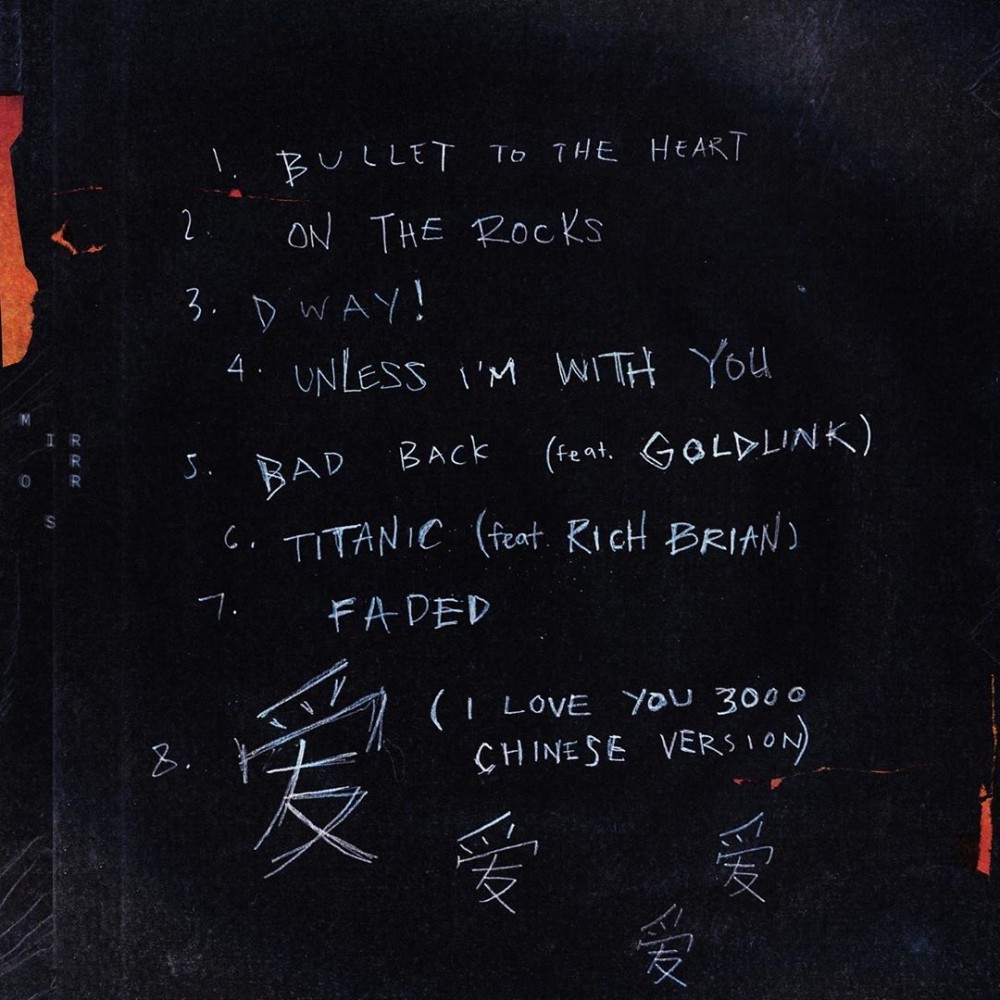 1. BULLET TO THE HEART
2. ON THE ROCKS
3. D WAY!
4. UNLESS I'M WITH YOU
5. BAD BACK (feat. GOLDLINK)
6. TITANIC (feat. RICH BRIAN)
7. FADED
8. 爱 (I LOVE YOU 3000
CHINESE VERSION)
爱
爱
爱
M
I R
R
O R
S